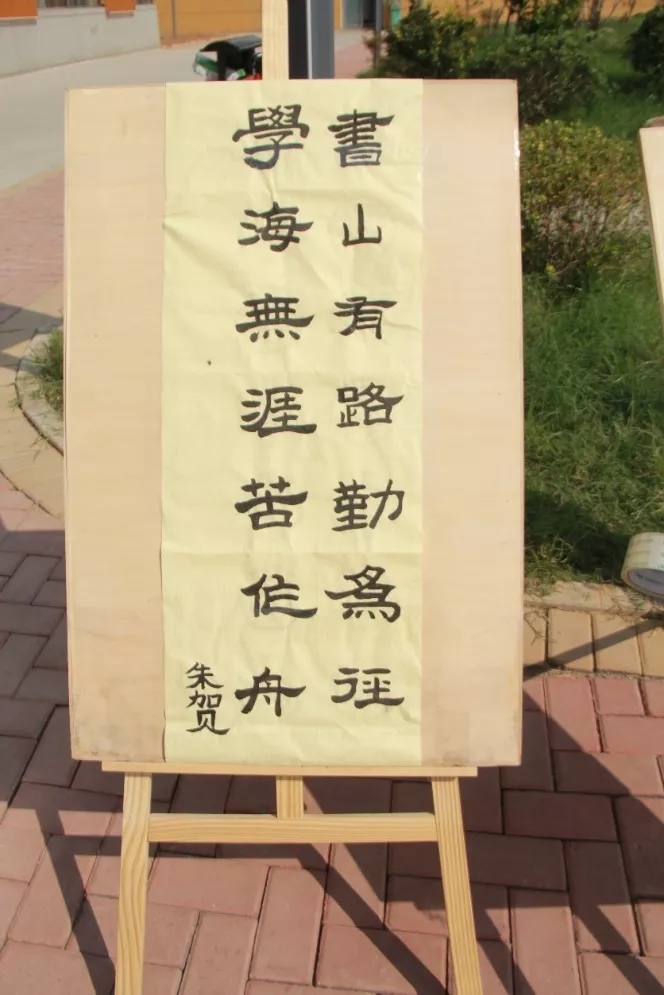 書山有路勤為徑
學海無涯苦作舟
朱贺